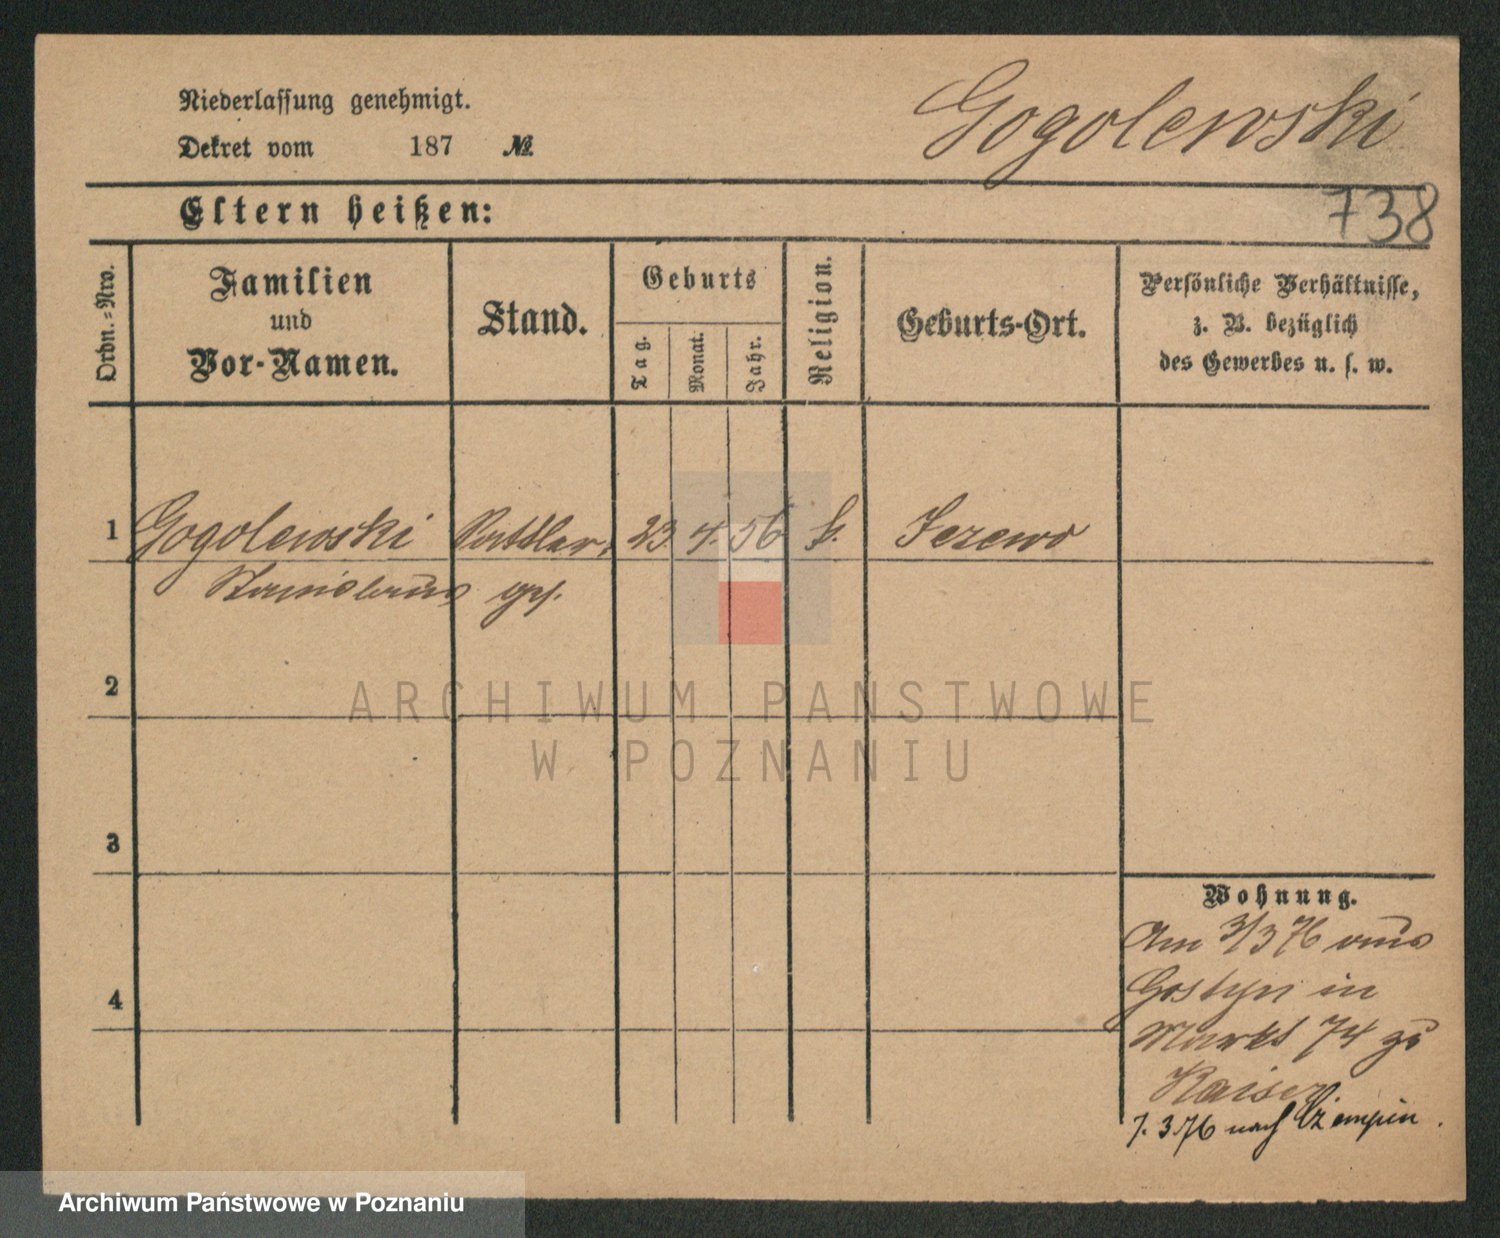 Niederlassung genehmigt.
Gogolewski
Dekret vom 187 №
Eltern heißen:
738
Ordn.-Nro.
Familien
und
Vor-Namen.
Stand.
Geburts
Tag.
Monat.
Jahr.
Religion.
Geburts-Ort.
Persönliche Verhältnisse,
z. B. bezüglich
des Gewerbes u. s. w.
1 Gogolewski Sattler 23. 4. 56 k. Jezewo
Stanislaus
2
ARCHIWUM PAŃSTWOWE
W POZNANIU
3
Wohnung.
Am 3/3 76 aus
Gostyn in
4
Markt 74 zu
Kaiser
7. 3 76 nach Czempin.
Archiwum Państwowe w Poznaniu